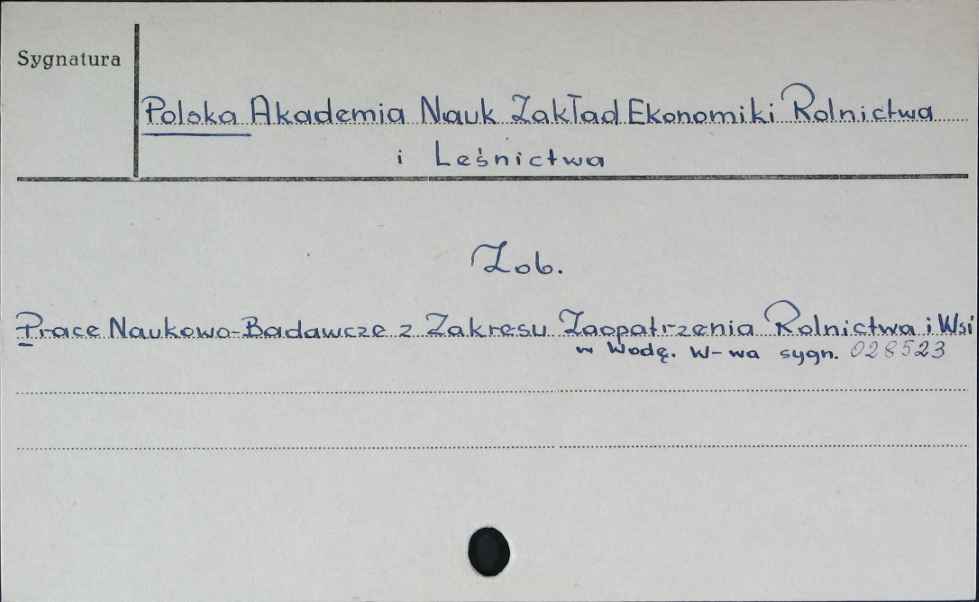 Sygnatura
Polska Akademia Nauk Zakład Ekonomiki Rolnictwa
i Leśnictwa
Zob.
Prace Naukowo-Badawcze z Zakresu Zaopatrzenia Rolnictwa i Wsi
w Wodę. W-wa sygn. 028523